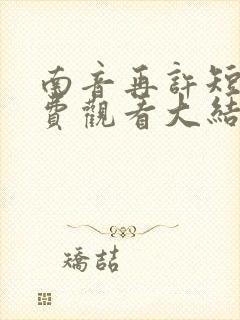 南音再許短
費觀看大結
矯喆